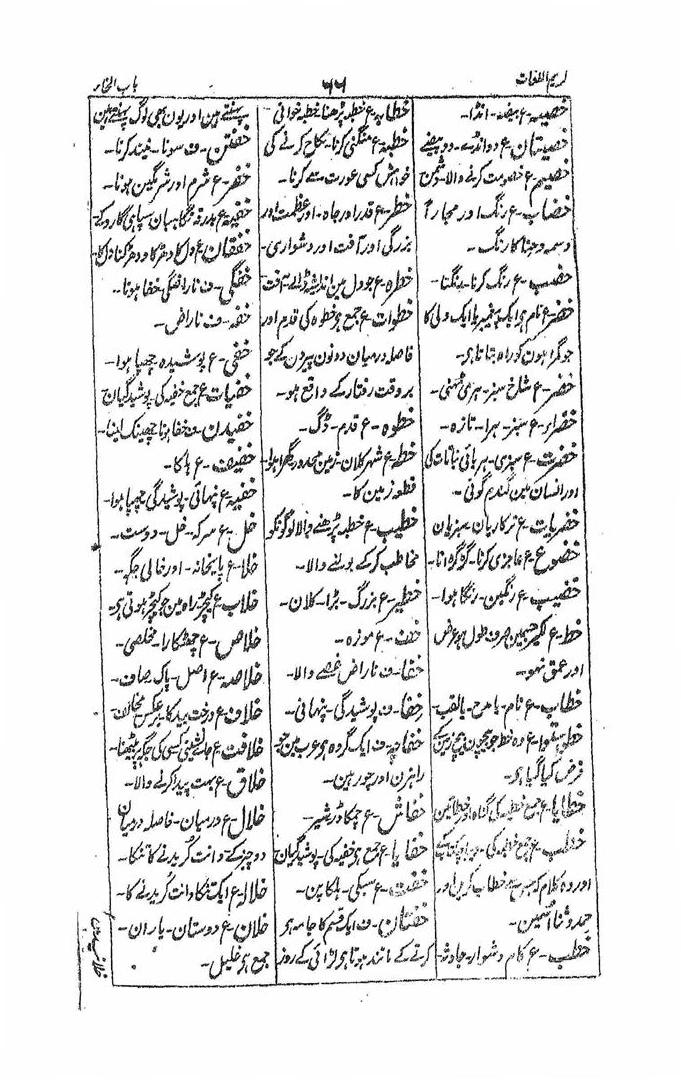 کریم اللغات
۶۶
باب الخاء
خصیہ - ع بیضہ - انڈا -
خصیتان - ع دو انڈے - دو بیضے
خصیم - ع خصومت کرنے والا - دشمن
خضاب - ع رنگ اور مجازاً
وسمہ و حنا کا رنگ -
خضب - ع رنگ کرنا - رنگنا -
خضر - ع نام ہی ایک پیغمبر یا ایک ولی کا
جو گمراہون کو راہ بتاتا ہی -
خضر - ع شاخ سبز - ہری ٹہنی -
خضراء - ع سبز - ہرا - تازہ -
خضرت - ع سبزی - ہریائی نباتات کی
اور انسان مین گندم گونی -
خضریات - ع ترکاریان - سبزیان
خضوع - ع عاجزی کرنا - گڑگڑانا -
خضیب - ع رنگین - رنگا ہوا -
خط - ع لکیر جسمین صرف طول ہو عرض
اور عمق نہو -
خطاب - ع نام - یا مدح - یا لقب -
خط استوا - ع وہ خط جو بیچون بیچ زمین کے
فرض کیا گیا ہی -
خطایا - ع جمع خطیہ کی گناہ اور خطائین
خطب - ع جمع خطبہ کی -
اور وہ کلام کہ جس سے خطاب کرین اور
حمد و ثنا اسمین -
خطب - ع کام دشوار - حادثہ -
خطابہ - ع خطبہ پڑھنا خطبہ خوانی -
خطبہ - ع منگنی کرنا - نکاح کرنے کی
خواہش کسی عورت سے کرنا -
خطر - ع قدر اور جاہ - اور عظمت اور
بزرگی اور آفت اور دشواری -
خطرہ - ع جو دل مین اندیشہ ڈالے - آفت
خطوات - ع جمع ہی خطوہ کی قدم اور
فاصلہ درمیان دونون پیرون کے جو
بروقت رفتار کے واقع ہو -
خطوہ - ع قدم - ڈگ -
خطہ - ع شہر کلان - زمین محدود - گھرا ہوا
قطعہ زمین کا -
خطیب - ع خطبہ پڑھنے والا لوگونکو
مخاطب کرکے بولنے والا -
خطیر - ع بزرگ - بڑا - کلان -
خف - ع موزہ -
خفا - ف ناراض غصے والا -
خفا - ف پوشیدگی - پنہانی -
خفاجہ - ف ایک گروہ ہی عرب مین جو
راہزن اور چور ہین -
خفاش - ع چمکادڑ شپر -
خفایا - ع جمع ہی خفیہ کی - پوشیدگیان
خفت - ع سبکی - ہلکا پن -
خفتان - ف ایک قسم کا جامہ ہی
کرتے کے مانند ہوتا ہی لڑائی کے روز
پہنتے ہین اور یون بھی لوگ پہنتے ہین
خفتن - ف سونا - نیند کرنا -
خفر - ع شرم اور شرمگین ہونا -
خفیر - ع بدرقہ نگاہبان سپاہی گارد کے
خفقان - ع دل کا دھڑکا و دھڑکنا دل کا
خفگی - ف ناراضگی خفا ہونا -
خفہ - ف ناراض -
خفی - ع پوشیدہ چھپا ہوا -
خفیات - ع جمع خفیہ کی - پوشیدگیان
خفیدن - ف خفا ہونا چھینک لینا -
خفیف - ع ہلکا -
خفیہ - ع نہائی - پوشیدگی چھپا ہوا -
خل - ع سرکہ - خل - دوست -
خلا - ع پایخانہ - اور خالی جگہ -
خلاب - ع کیچڑ راہ مین جو کیچڑ ہوتی ہی
خلاص - ع چھٹکارا - مخلصی -
خلاصہ - ع اصل - پاک - صاف -
خلاف - ع درخت بید کا - برعکس مخالف -
خلافت - ع جانشینی کسی کی جگہ پر بیٹھنا -
خلاق - ع بہت پیدا کرنے والا -
خلال - ع درمیان - فاصلہ درمیان
دو چیز کے - دانت کریدنے کا تنکا -
خلالہ - ع ایک تنکا دانت کریدنے کا -
خلان - ع دوستان - یاران -
جمع ہی خلیل -